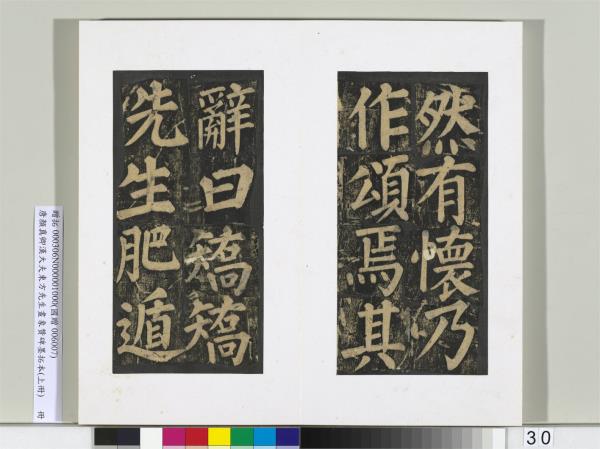 然有懷乃
作頌焉其
辭曰矯矯
先生肥遁
贈拓000306N000001000(國贈006007)
唐顏真卿漢大夫東方先生畫象贊碑墨拓本(上冊) 冊
30